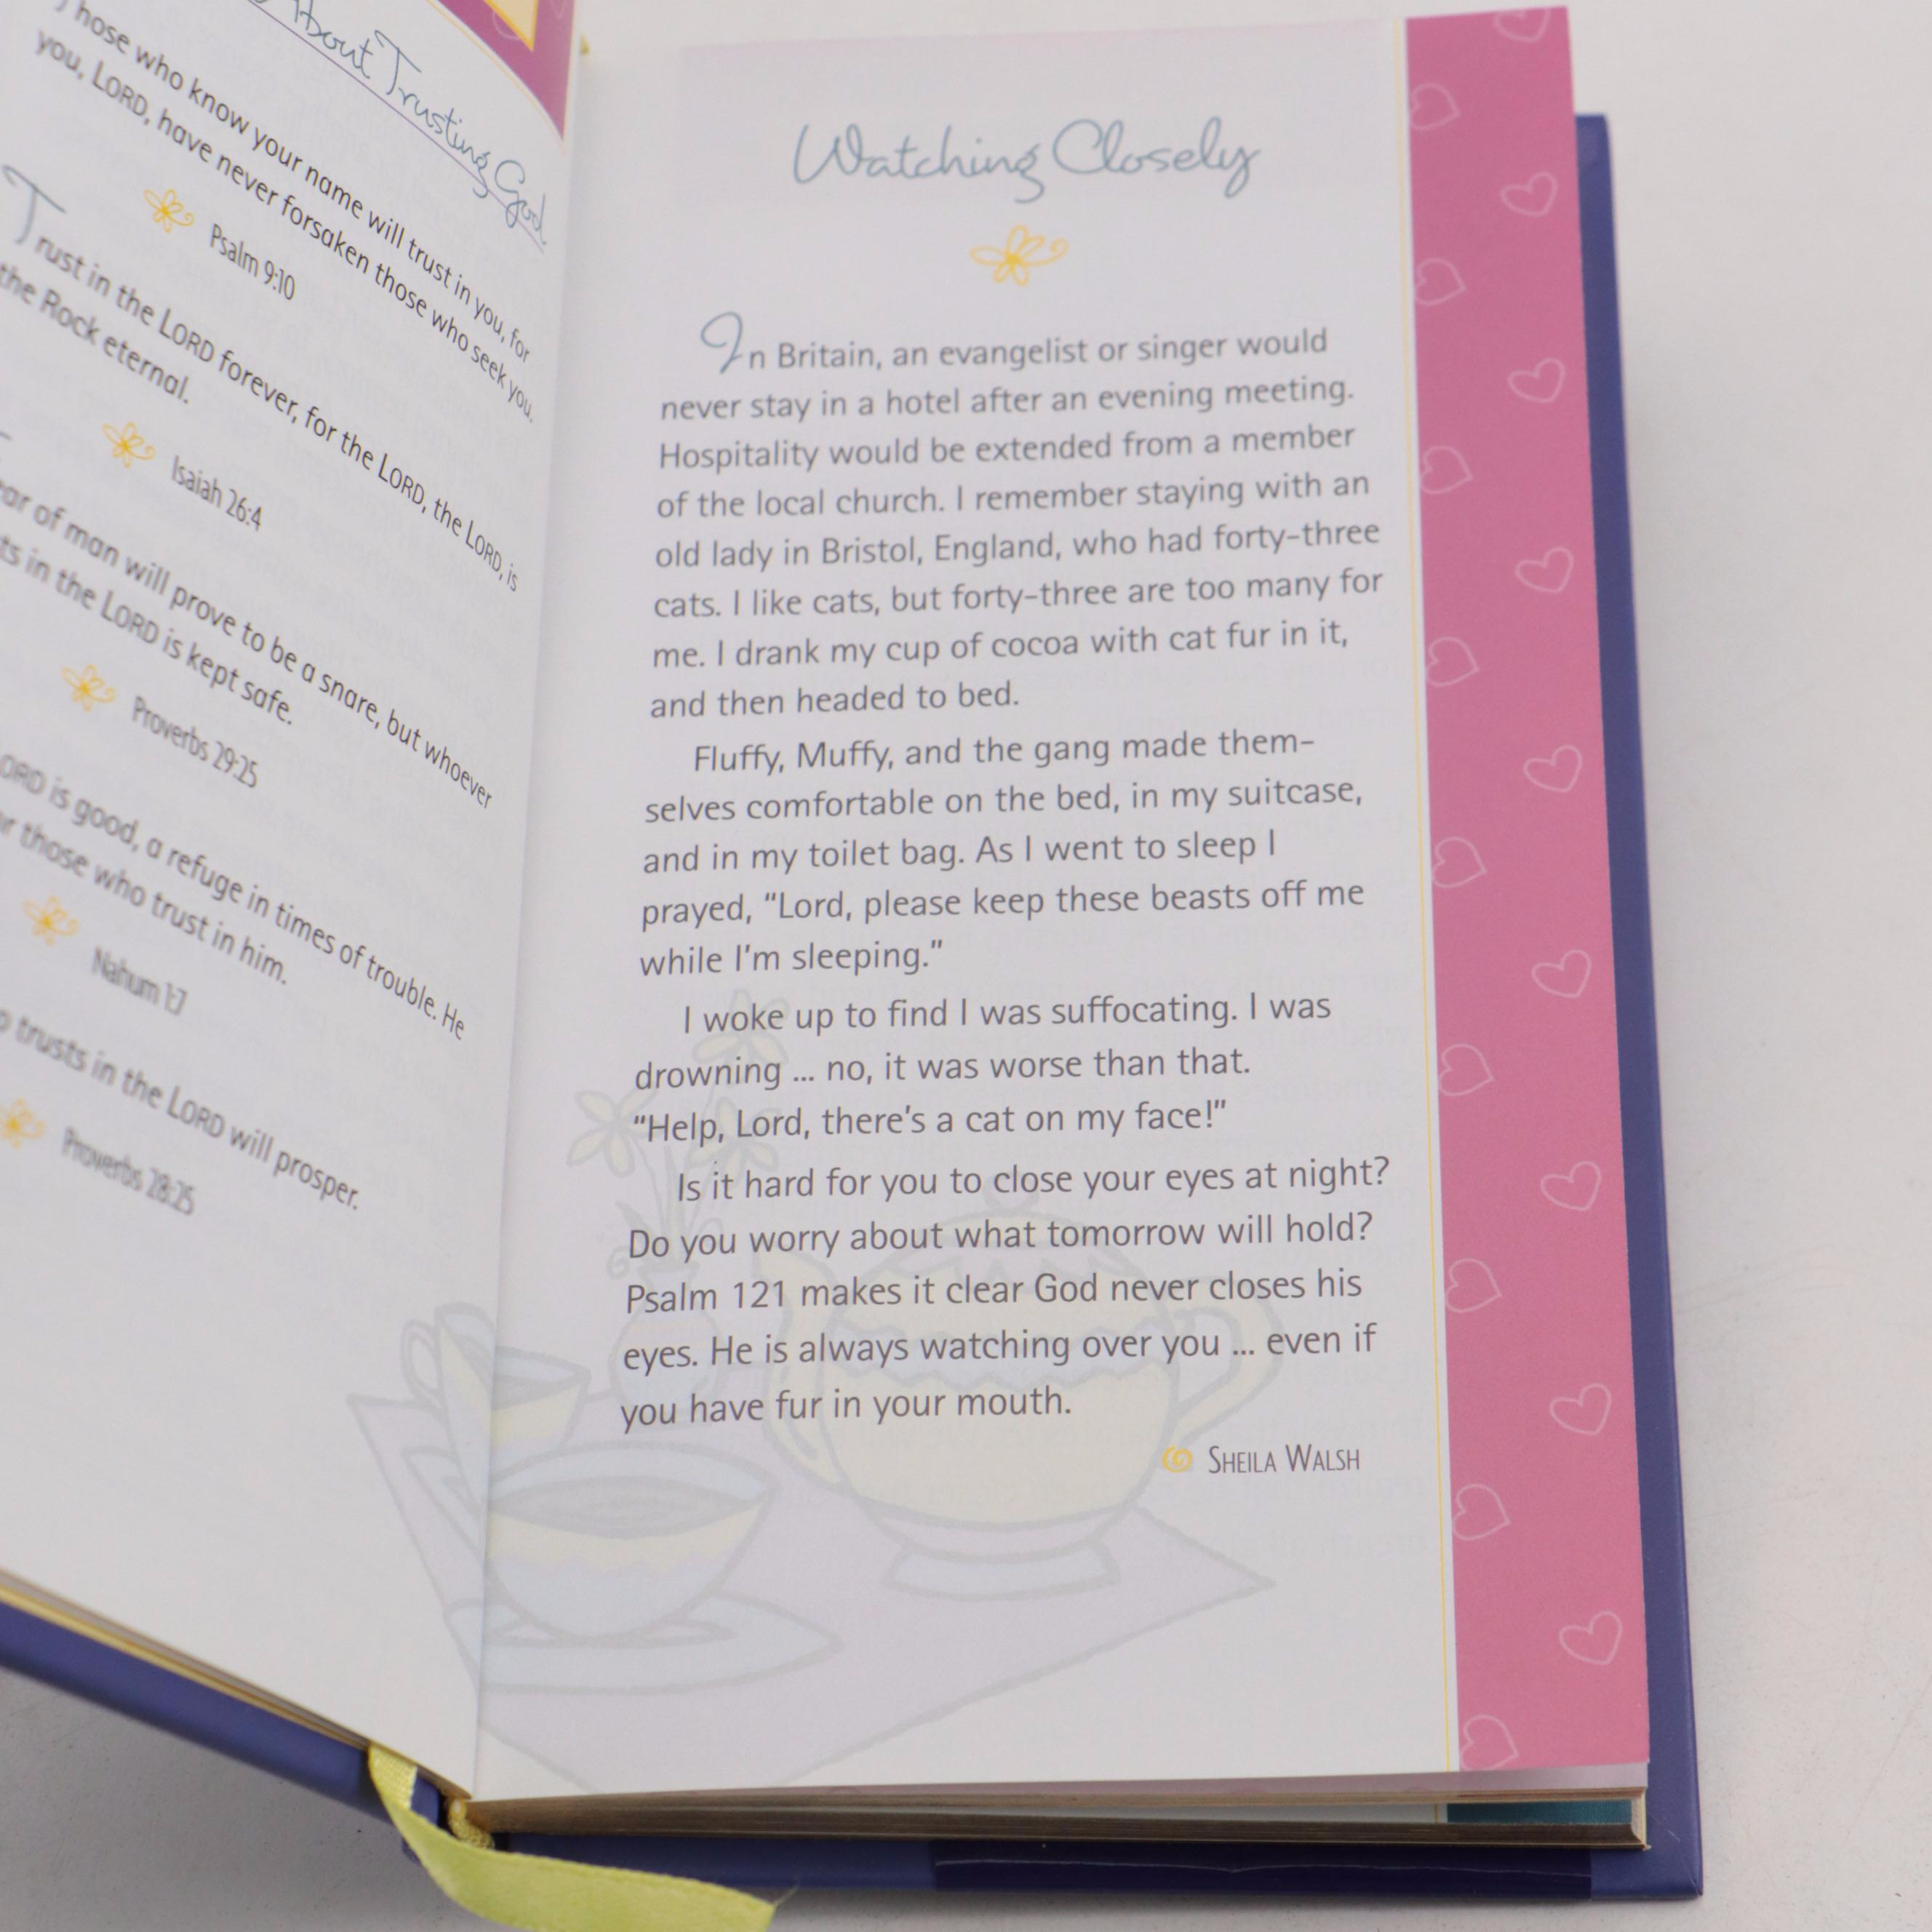 About Trusting God
hose who know your name will trust in you, for
you, LORD, have never forsaken those who seek you.
Psalm 9:10
Trust in the LORD forever, for the LORD, the LORD, is
the Rock eternal.
Isaiah 26:4
ear of man will prove to be a snare, but whoever
ts in the LORD is kept safe.
Proverbs 29:25
ORD is good, a refuge in times of trouble. He
those who trust in him.
Nahum 1:7
trusts in the LORD will prosper.
Proverbs 28:25
Watching Closely
In Britain, an evangelist or singer would
never stay in a hotel after an evening meeting.
Hospitality would be extended from a member
of the local church. I remember staying with an
old lady in Bristol, England, who had forty-three
cats. I like cats, but forty-three are too many for
me. I drank my cup of cocoa with cat fur in it,
and then headed to bed.
Fluffy, Muffy, and the gang made them-
selves comfortable on the bed, in my suitcase,
and in my toilet bag. As I went to sleep I
prayed, “Lord, please keep these beasts off me
while I’m sleeping.”
I woke up to find I was suffocating. I was
drowning ... no, it was worse than that.
“Help, Lord, there’s a cat on my face!”
Is it hard for you to close your eyes at night?
Do you worry about what tomorrow will hold?
Psalm 121 makes it clear God never closes his
eyes. He is always watching over you ... even if
you have fur in your mouth.
SHEILA WALSH